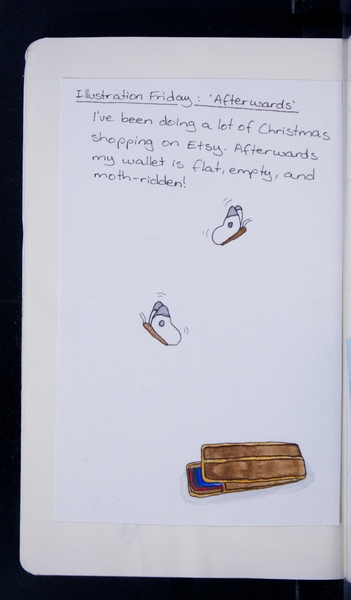 Illustration Friday: 'Afterwards'
I've been doing a lot of Christmas
shopping on Etsy. Afterwards
my wallet is flat, empty, and
moth-ridden!